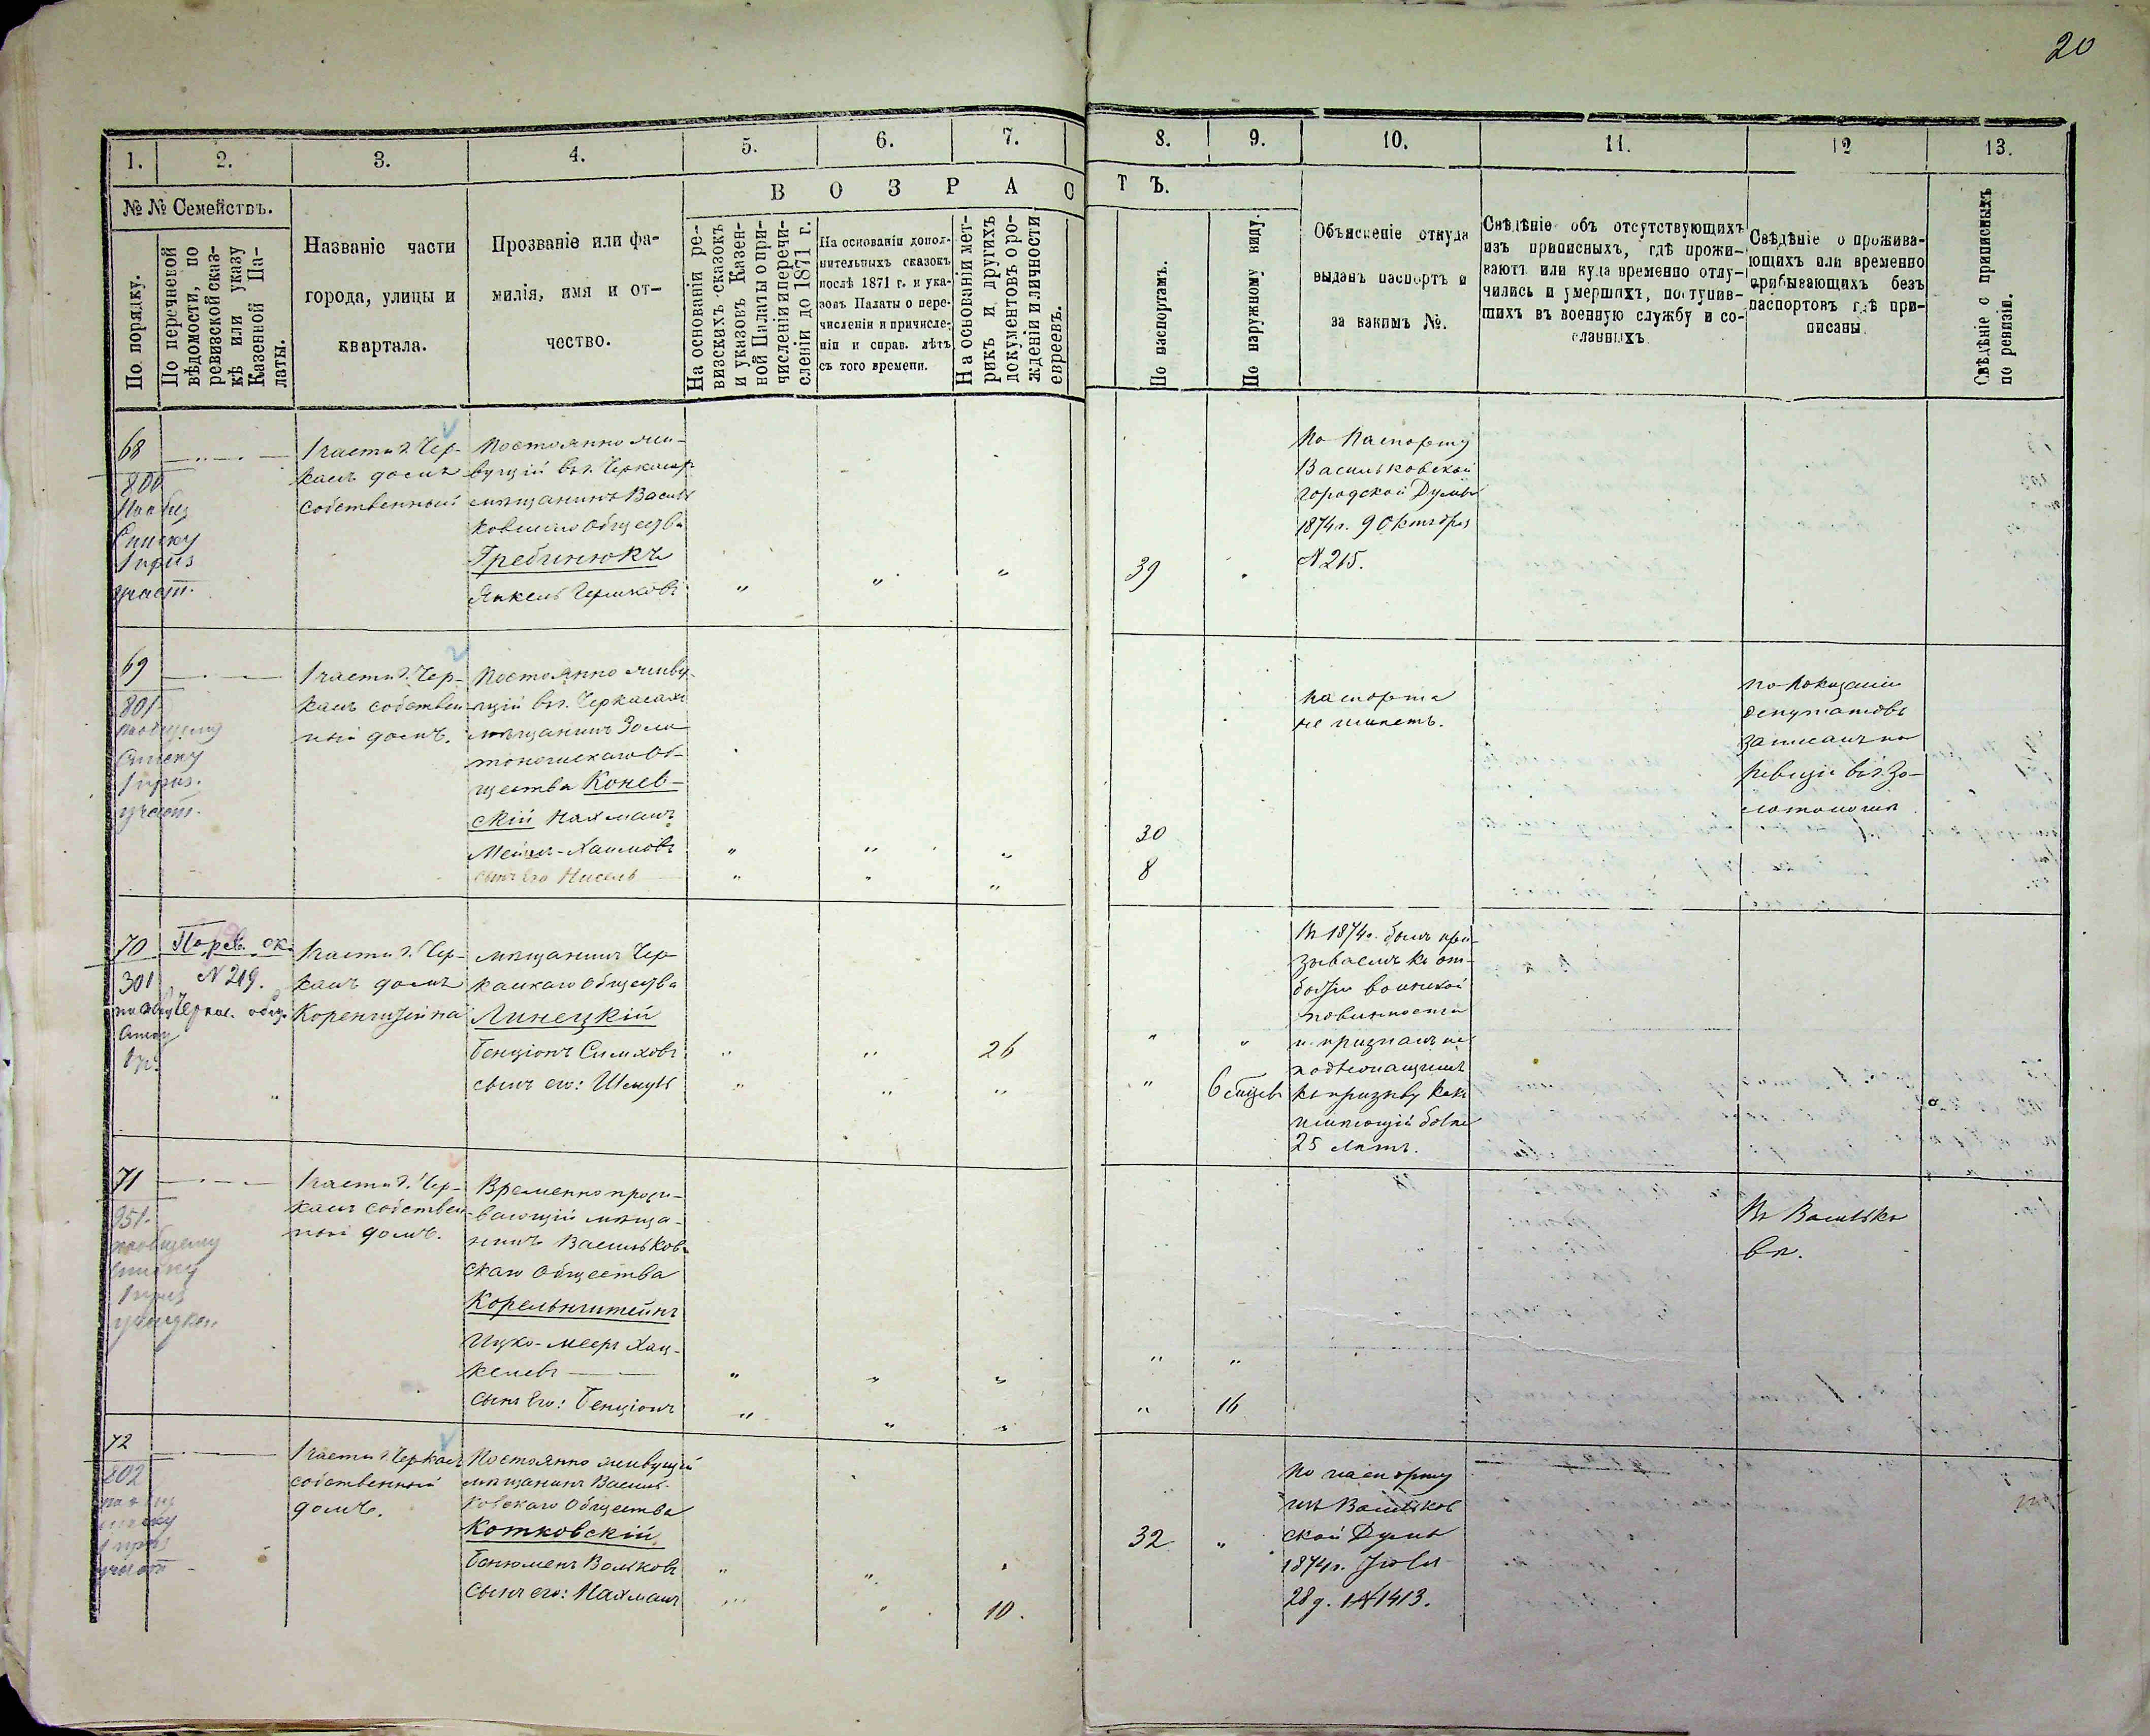 20
1.
2.
3.
4.
5.
6.
7.
8.
9.
10.
11.
12
13.
№ № Семействъ.
По порядку.
По перечневой
вѣдомости, по
ревизской сказ-
кѣ или указу
Казенной Па-
латы.
Названіе части
города, улицы и
квартала.
Прозваніе или фа-
милія, имя и от-
чество.
В О З Р А С Т Ъ.
На основаніи ре-
визскихъ сказокъ
и указовъ Казен-
ной Палаты о при-
численіи и перечи-
сленіи до 1871 г.
На основаніи допол-
нительныхъ сказокъ
послѣ 1871 г. и ука-
зовъ Палаты о пере-
численіи и причисле-
ніи и справ. лѣтъ
съ того времени.
На основаніи мет-
рикъ и другихъ
документовъ о ро-
жденіи и личности
евреевъ.
По паспортамъ.
По наружному виду.
Объясненіе откуда
выданъ паспортъ и
за какимъ №.
Свѣдѣніе объ отсутствующихъ
изъ приписныхъ, гдѣ прожи-
ваютъ или куда временно отлу-
чились и умершихъ, поступив-
шихъ въ военную службу и со-
сланныхъ
Свѣдѣніе о прожива-
ющихъ или временно
прибывающихъ безъ
паспортовъ гдѣ при-
писаны
Свѣдѣніе о приписныхъ
по ревизіи.
68
800
1 части г. Чер-
касъ домъ
собственный
Постоянно жи-
вущій въ г. Черкасахъ
мѣщанинъ Василь
ковскаго Общества
Гребинюкъ
Янкель Гершковъ
39
По Паспорту
Васильковской
городской Думы
1874 г. 9 Октября
№ 215.
69
801
по общему
списку
1 приз.
участ.
1 части г. Чер-
касъ собствен
ный домъ.
Постоянно живу-
щій въ г. Черкасахъ
мѣщанинъ Золо
тоношскаго Об-
щества Конев-
скій Нахманъ
Хаимовъ
сынъ его Нисель
30
8
паспорта
не имѣетъ.
по показанію
депутатовъ
записанъ по
ревизіи въ г. Зо-
лотоноши
70
301
По рев. ск.
№ 219.
Черкас. общ.
1 части г. Чер-
касъ домъ
мѣщанинъ Чер
каскаго Общества
Линецкій
Бенціонъ Симховъ
сынъ его: Шмуль
26
6 мѣсяцев
Въ 1874 г. былъ при-
зываемъ къ от-
бытію воинской
повинности
и признанъ не
подлежащимъ
къ призыву какъ
имѣющій болѣе
25 лѣтъ.
71
951
по общему
списку
1 приз
участка
1 части г. Чер-
касъ собствен
ный домъ.
Временно прожи-
вающій мѣща-
нинъ Васильков-
скаго Общества
Корельнштейнъ
Ицко-Мееръ Хац-
келевъ
сынъ его: Бенціонъ
16
Въ Василько
вѣ.
72
802
1 части г. Черкасъ
собственный
домъ.
Постоянно живущій
мѣщанинъ Василь-
ковскаго Общества
Котковскій
Бенюменъ Волковъ
сынъ его: Нахманъ
10.
32
По паспорту
изъ Васильков
ской Думы
1874 г. Іюля
28 д. № 1413.